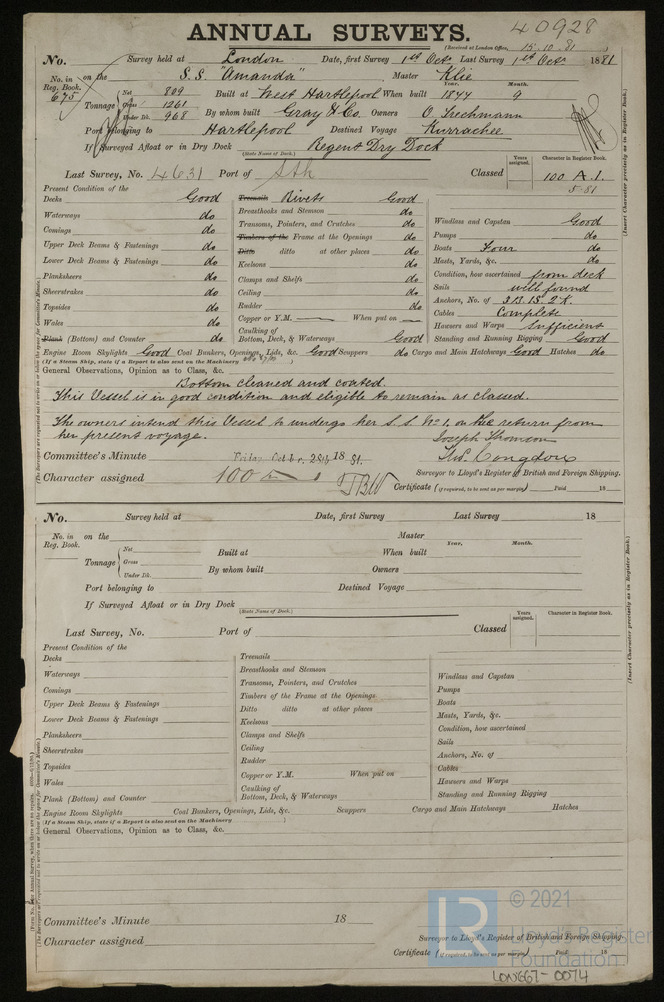 40928
ANNUAL SURVEYS.
(Received at London Office, 15.10.81)
No. Survey held at London Date, first Survey 1st Octr Last Survey 1st Octr 1881
No. in Reg. Book. 675 on the S.S. "Amanda" Master Klie
Tonnage Net 809 Built at West Hartlepool When built Year. 1877 Month. 9
Gross 1261 By whom built Gray & Co. Owners O. Trechmann
Under Dk. 968
Port belonging to Hartlepool Destined Voyage Kurrachee
If Surveyed Afloat or in Dry Dock Regent Dry Dock
(State Name of Dock.)
Last Survey, No. 4631 Port of Sth Classed Years assigned. Character in Register Book. 100 A.1.
5.81
(Insert Character precisely as in Register Book.)
Present Condition of the
Decks Good
Waterways do
Comings do
Upper Deck Beams & Fastenings do
Lower Deck Beams & Fastenings do
Planksheers do
Sheerstrakes do
Topsides do
Wales do
Plank (Bottom) and Counter do
Treenails Rivets Good
Breasthooks and Stemson do
Transoms, Pointers, and Crutches do
Timbers of the Frame at the Openings do
Ditto ditto at other places do
Keelsons do
Clamps and Shelfs do
Ceiling do
Rudder do
Copper or Y.M. — When put on —
Caulking of
Bottom, Deck, & Waterways Good
Windlass and Capstan Good
Pumps do
Boats Four do
Masts, Yards, &c. do
Condition, how ascertained from deck
Sails well found
Anchors, No. of 3B. 1S. 2K.
Cables Complete
Hawsers and Warps Sufficient
Standing and Running Rigging Good
Engine Room Skylights Good Coal Bunkers, Openings, Lids, &c. Good Scuppers do Cargo and Main Hatchways Good Hatches do
(If a Steam Ship, state if a Report is also sent on the Machinery)
General Observations, Opinion as to Class, &c.
Bottom cleaned and coated.
This Vessel is in good condition and eligible to remain as classed.
The owners intend this Vessel to undergo her S.S. No 1, on the return from
her present voyage.
Joseph Thomson
Committee's Minute Friday Octbr. 28th 1881. Thos. Congdon
Surveyor to Lloyd's Register of British and Foreign Shipping.
Character assigned 100 A 1
Certificate (if required, to be sent as per margin) Paid 18
No. Survey held at Date, first Survey Last Survey 18
No. in Reg. Book. on the Master
Tonnage Net Built at When built Year. Month.
Gross By whom built Owners
Under Dk.
Port belonging to Destined Voyage
If Surveyed Afloat or in Dry Dock
(State Name of Dock.)
Last Survey, No. Port of Classed Years assigned. Character in Register Book.
(Insert Character precisely as in Register Book.)
Present Condition of the
Decks
Waterways
Comings
Upper Deck Beams & Fastenings
Lower Deck Beams & Fastenings
Planksheers
Sheerstrakes
Topsides
Wales
Plank (Bottom) and Counter
Treenails
Breasthooks and Stemson
Transoms, Pointers, and Crutches
Timbers of the Frame at the Openings
Ditto ditto at other places
Keelsons
Clamps and Shelfs
Ceiling
Rudder
Copper or Y.M. When put on
Caulking of
Bottom, Deck, & Waterways
Windlass and Capstan
Pumps
Boats
Masts, Yards, &c.
Condition, how ascertained
Sails
Anchors, No. of
Cables
Hawsers and Warps
Standing and Running Rigging
Engine Room Skylights Coal Bunkers, Openings, Lids, &c. Scuppers Cargo and Main Hatchways Hatches
(If a Steam Ship, state if a Report is also sent on the Machinery)
General Observations, Opinion as to Class, &c.
Committee's Minute 18
Character assigned
Surveyor to Lloyd's Register of British and Foreign Shipping.
Certificate (if required, to be sent as per margin) Paid 18
LR
© 2021
Lloyd's Register
Foundation
LON667-0074